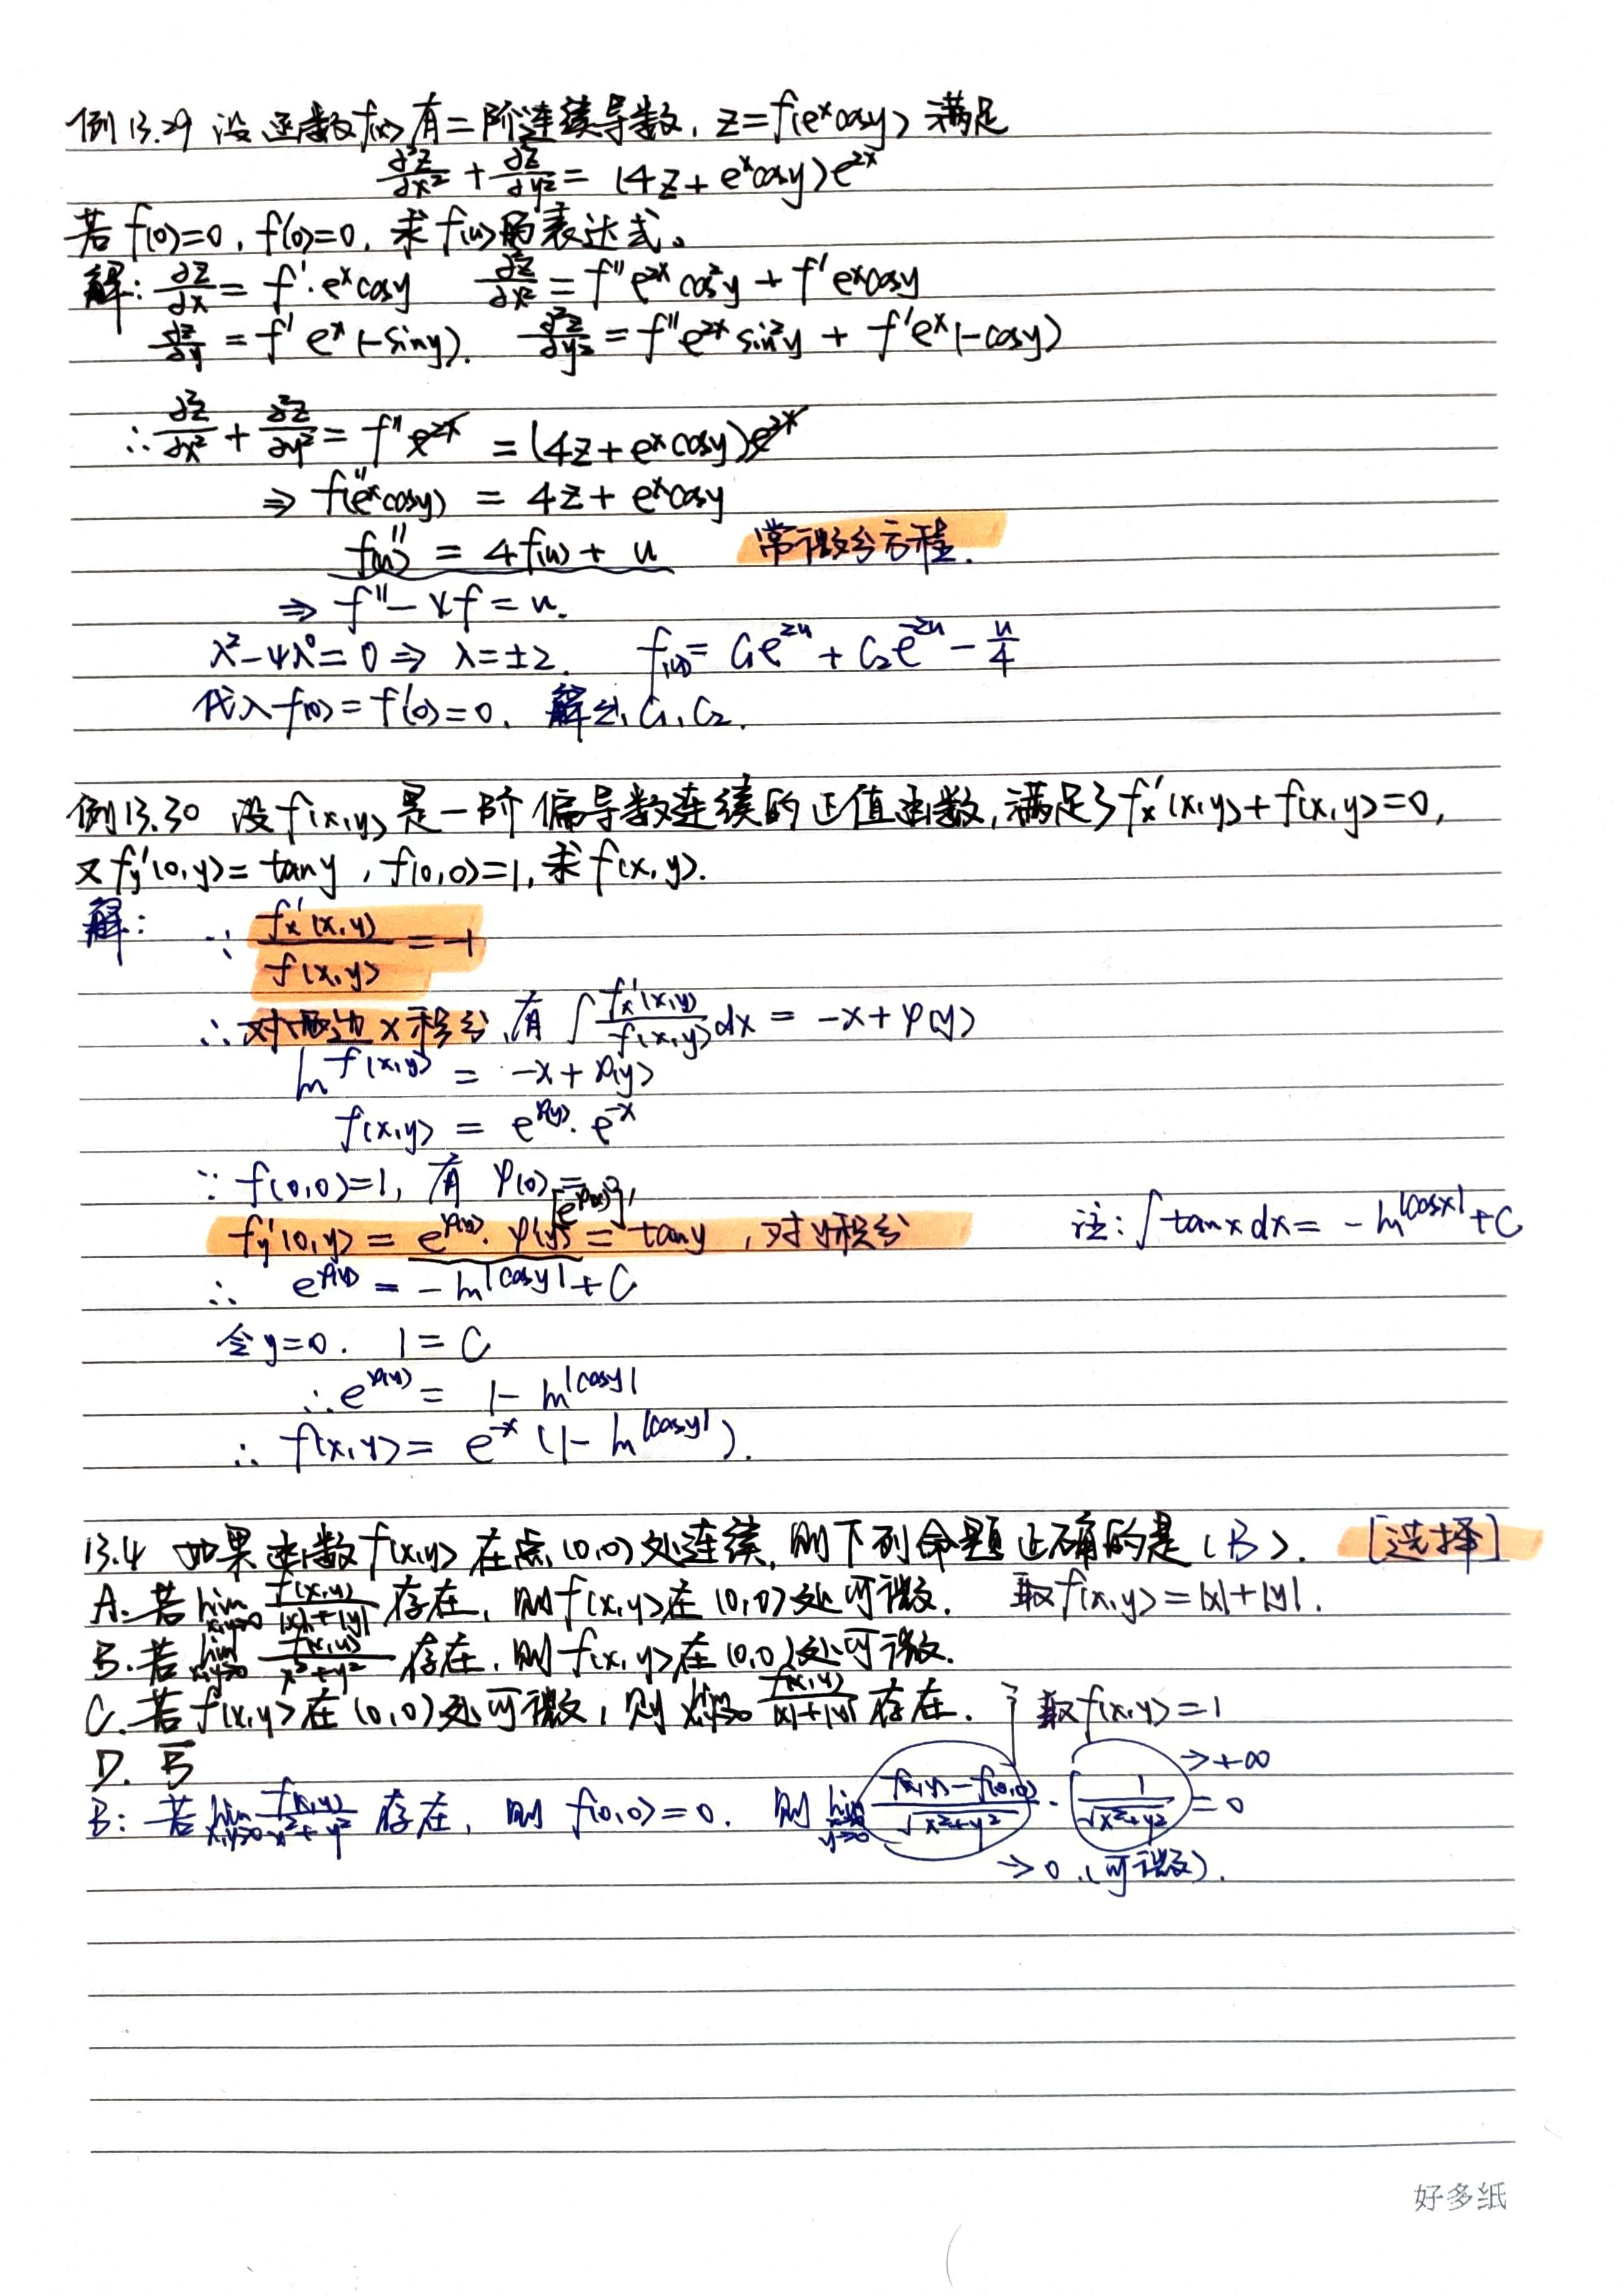 例13.29 设函数f(u)有二阶连续导数, z=f(eˣcosy) 满足
∂²z/∂x² + ∂²z/∂y² = (4z+eˣcosy)e²ˣ
若 f(0)=0, f'(0)=0, 求 f(u)的表达式。
解: ∂z/∂x = f'·eˣcosy ∂²z/∂x² = f''e²ˣcos²y + f'eˣcosy
∂z/∂y = f' eˣ(-siny). ∂²z/∂y² = f''e²ˣsin²y + f'eˣ(-cosy)
∴ ∂²z/∂x² + ∂²z/∂y² = f''e²ˣ = (4z+eˣcosy)e²ˣ
⇒ f''(eˣcosy) = 4z+eˣcosy
f''(u) = 4f(u) + u 常微分方程.
⇒ f''-4f=u.
λ²-4λ⁰=0 ⇒ λ=±2. f(u)= C₁e²ᵘ + C₂e⁻²ᵘ - u/4
代入f(0)=f'(0)=0, 解出 C₁, C₂.
例13.30 设f(x,y)是一阶偏导数连续的正值函数, 满足于fx'(x,y)+f(x,y)=0,
又fy'(0,y)=tany, f(0,0)=1, 求f(x,y).
解: ∵ fx'(x,y)/f(x,y) = -1
∴ 对两边x积分, 有 ∫ fx'(x,y)/f(x,y) dx = -x+φ(y)
ln f(x,y) = -x+φ(y)
f(x,y) = e^φ(y)·e⁻ˣ
∵ f(0,0)=1, 有 φ(0)=0
[e^φ(y)]'
fy'(0,y) = e^φ(y)·φ'(y) = tany, 对y积分 注: ∫tanxdx = -ln|cosx|+C
∴ e^φ(y) = -ln|cosy|+C
令y=0. 1=C
∴ e^φ(y) = 1-ln|cosy|
∴ f(x,y) = e⁻ˣ(1-ln|cosy|).
13.4 如果函数f(x,y)在点(0,0)处连续, 则下列命题正确的是(B). [选择]
A. 若 lim x→0 y→0 f(x,y)/(|x|+|y|) 存在, 则f(x,y)在(0,0)处可微. 取f(x,y)=|x|+|y|.
B. 若 lim x→0 y→0 f(x,y)/(x²+y²) 存在, 则f(x,y)在(0,0)处可微.
C. 若f(x,y)在(0,0)处可微, 则 lim x→0 y→0 f(x,y)/(|x|+|y|) 存在. 取f(x,y)=1
D.
B: 若 lim x→0 y→0 f(x,y)/(x²+y²) 存在, 则 f(0,0)=0. 则 lim x→0 y→0 (f(x,y)-f(0,0))/√(x²+y²) · 1/√(x²+y²) = 0 →+∞
→0.(可微).
好多纸